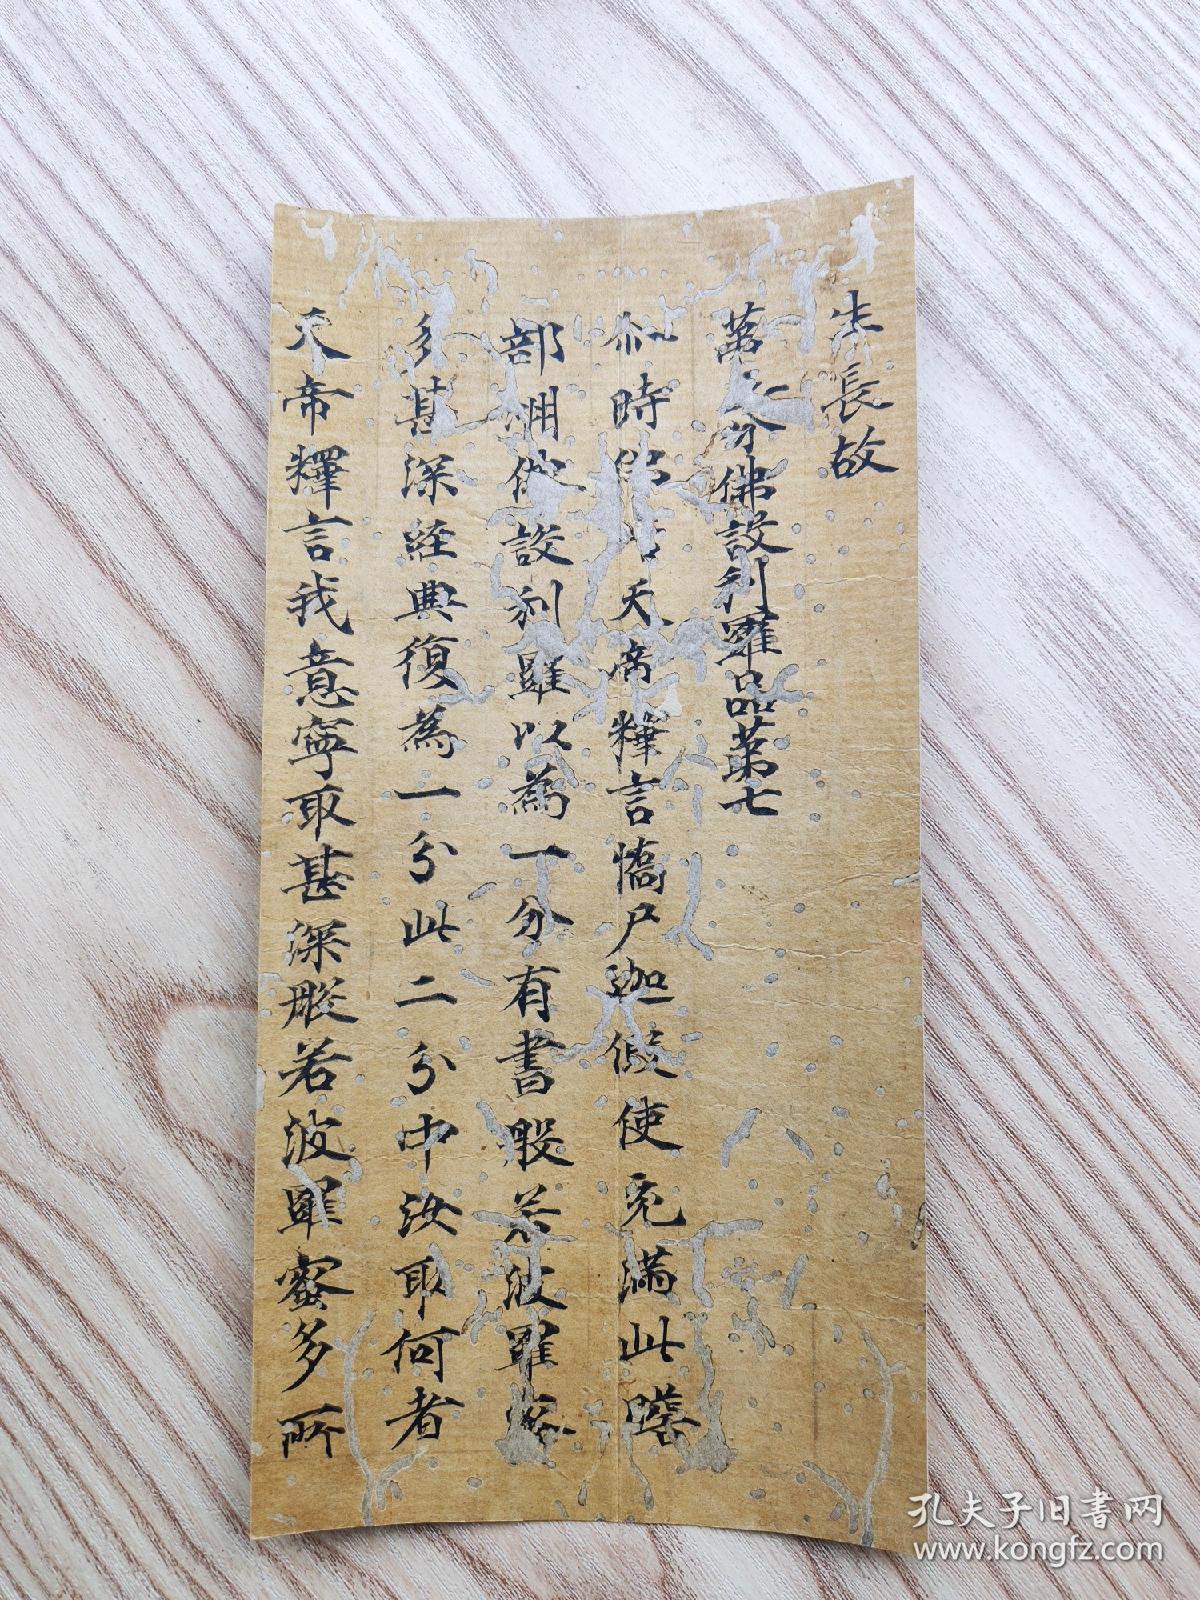 生長故
第二分佛設利羅品第七
尒時佛告天帝釋言憍尸迦假使充滿此贍
部洲佛設利羅以為一分有書般若波羅蜜
多甚深經典復為一分此二分中汝取何者
天帝釋言我意寧取甚深般若波羅蜜多所
孔夫子旧書网
www.kongfz.com